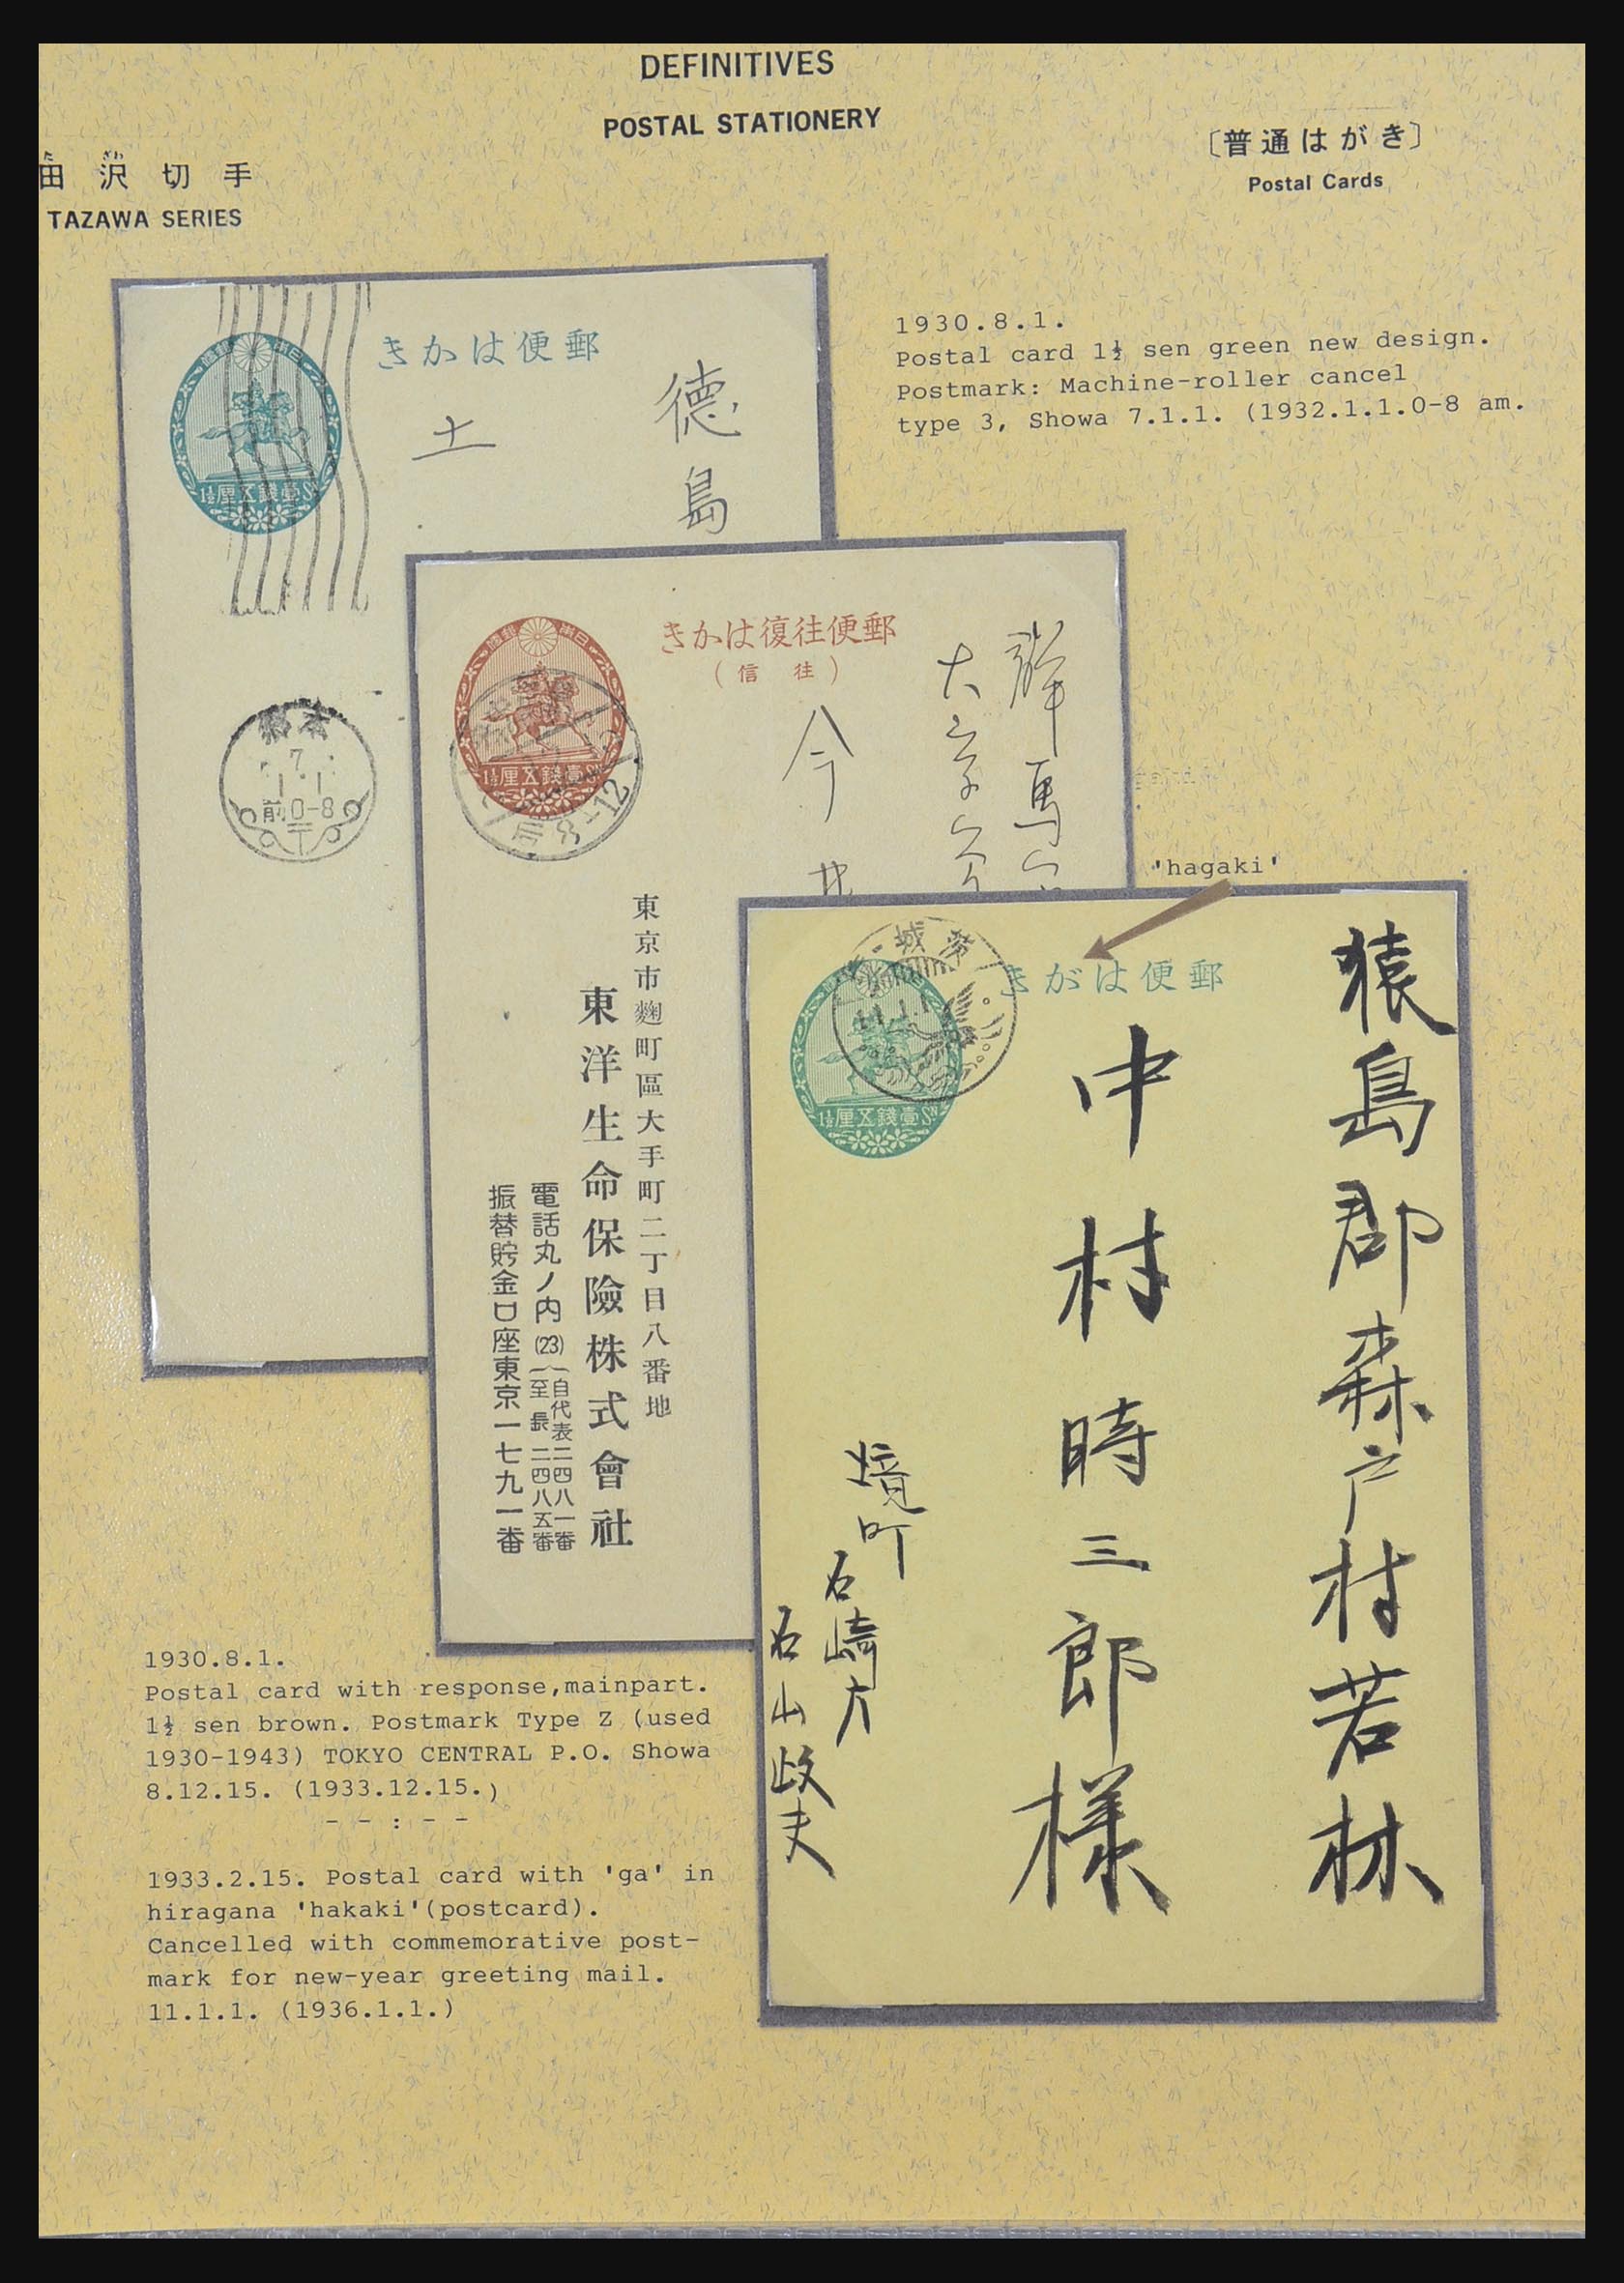 DEFINITIVES
POSTAL STATIONERY
〔普通はがき〕
Postal Cards
田沢切手
TAZAWA SERIES
1930.8.1.
Postal card 1½ sen green new design.
Postmark: Machine-roller cancel
type 3, Showa 7.1.1. (1932.1.1.0-8 am.
きかは便郵
德島
土
1½厘五錢壹
7
1.1
前0-8
きかは復往便郵
(信往)
今井
1½厘五錢壹
東京市麴町區大手町二丁目八番地
東洋生命保險株式會社
電話丸ノ内(23)
自代表二四八一番
至長二四八五番
振替貯金口座東京一七九一番
'hagaki'
きがは便郵
1½厘五錢壹
猿島郡森戸村若林
中村時三郎様
境町
石崎方
石山
1930.8.1.
Postal card with response,mainpart.
1½ sen brown. Postmark Type Z (used
1930-1943) TOKYO CENTRAL P.O. Showa
8.12.15. (1933.12.15.)
- - : - -
1933.2.15. Postal card with 'ga' in
hiragana 'hakaki'(postcard).
Cancelled with commemorative post-
mark for new-year greeting mail.
11.1.1. (1936.1.1.)